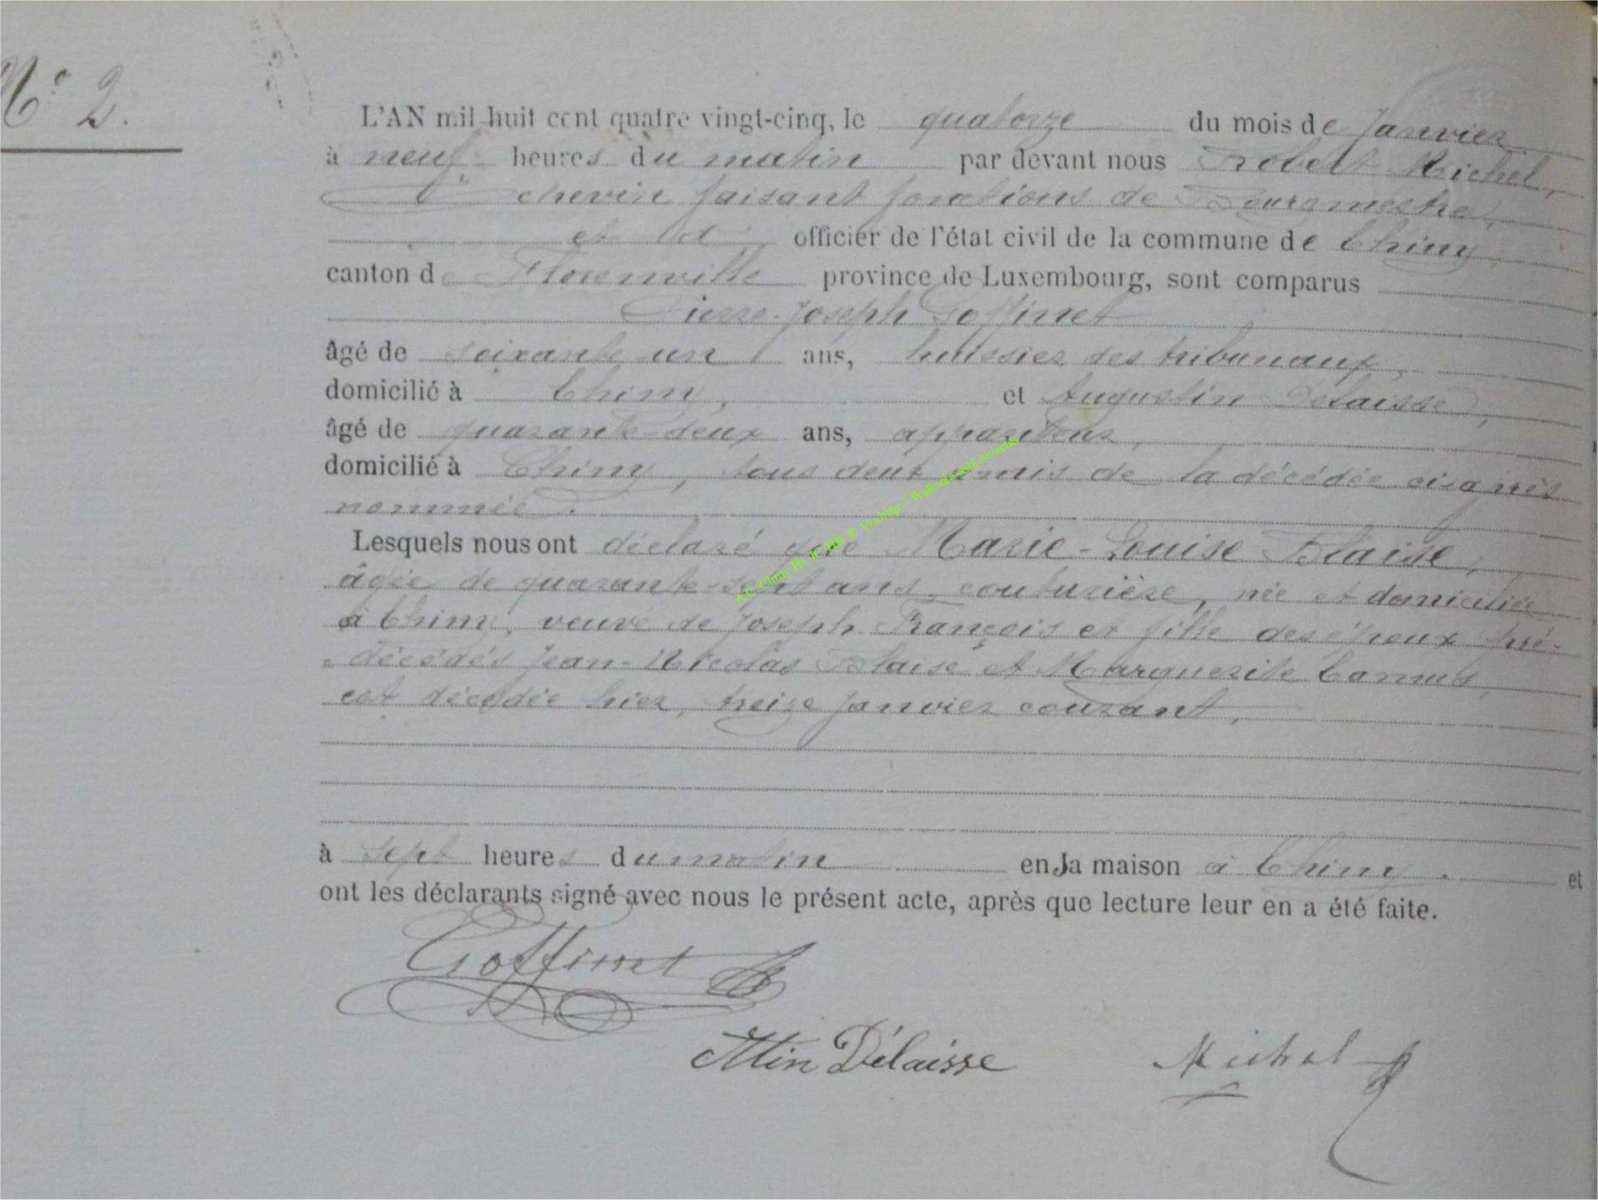 N° 2.
L'AN mil huit cent quatre vingt-cinq, le quatorze du mois de Janvier
à neuf heures du matin par devant nous Robert Michel,
Echevin faisant fonctions de Bourgmestre,
et d' officier de l'état civil de la commune de Chiny,
canton de Florenville province de Luxembourg, sont comparus
Pierre-Joseph Goffinet
âgé de soixante-un ans, huissier des tribunaux,
domicilié à Chiny, et Augustin Delaisse,
âgé de quarante-deux ans, appariteur,
domicilié à Chiny, tous deux amis de la décédée ci-après
nommée.
Lesquels nous ont déclaré que Marie-Louise Blaise,
âgée de quarante-sept ans, couturière, née et domiciliée
à Chiny, veuve de Joseph François et fille des époux pré-
décédés Jean-Nicolas Blaise et Marguerite Camus,
est décédée hier, treize Janvier courant,
à sept heures du matin en sa maison à Chiny. et
ont les déclarants signé avec nous le présent acte, après que lecture leur en a été faite.
Goffinet
Atin Délaisse Michel